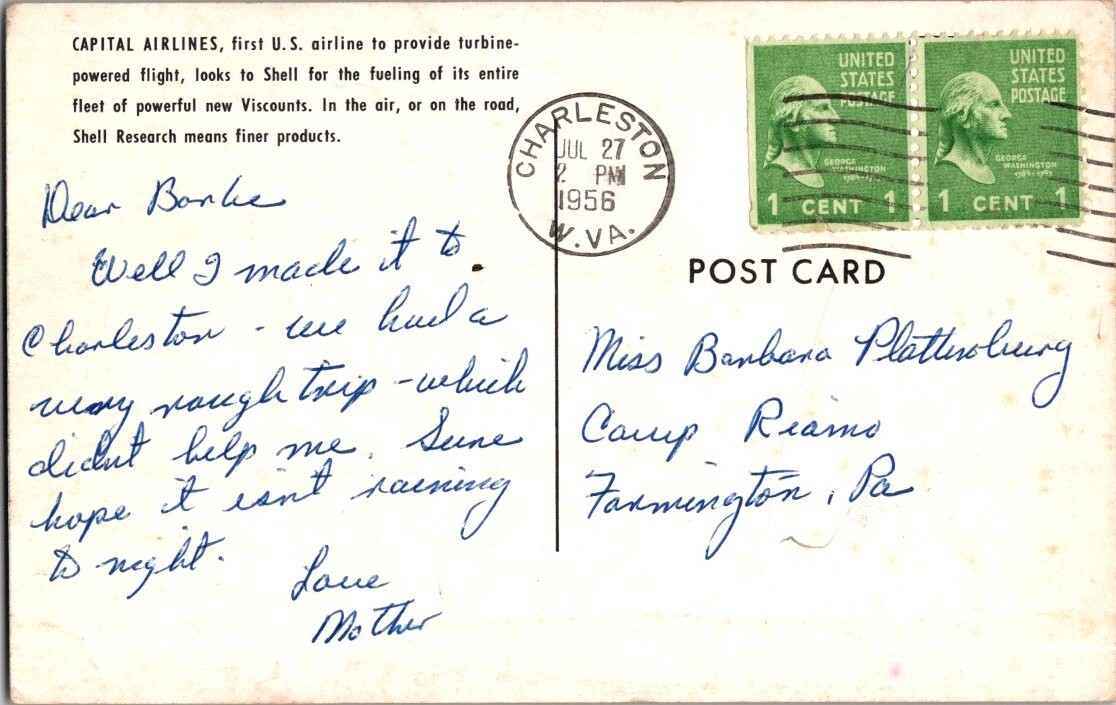 CAPITAL AIRLINES, first U.S. airline to provide turbine-
powered flight, looks to Shell for the fueling of its entire
fleet of powerful new Viscounts. In the air, or on the road,
Shell Research means finer products.
CHARLESTON
JUL 27
2 PM
1956
W.VA.
UNITED
STATES
POSTAGE
GEORGE
WASHINGTON
1789-1797
1 CENT 1
UNITED
STATES
POSTAGE
GEORGE
WASHINGTON
1789-1797
1 CENT 1
POST CARD
Dear
Well I made it to
Charleston - we had a
very rough trip - which
didn't help me. Sure
hope it isn't raining
to night.
Love
Mother
Miss Barbara Plattenburg
Camp
Farmington, Pa